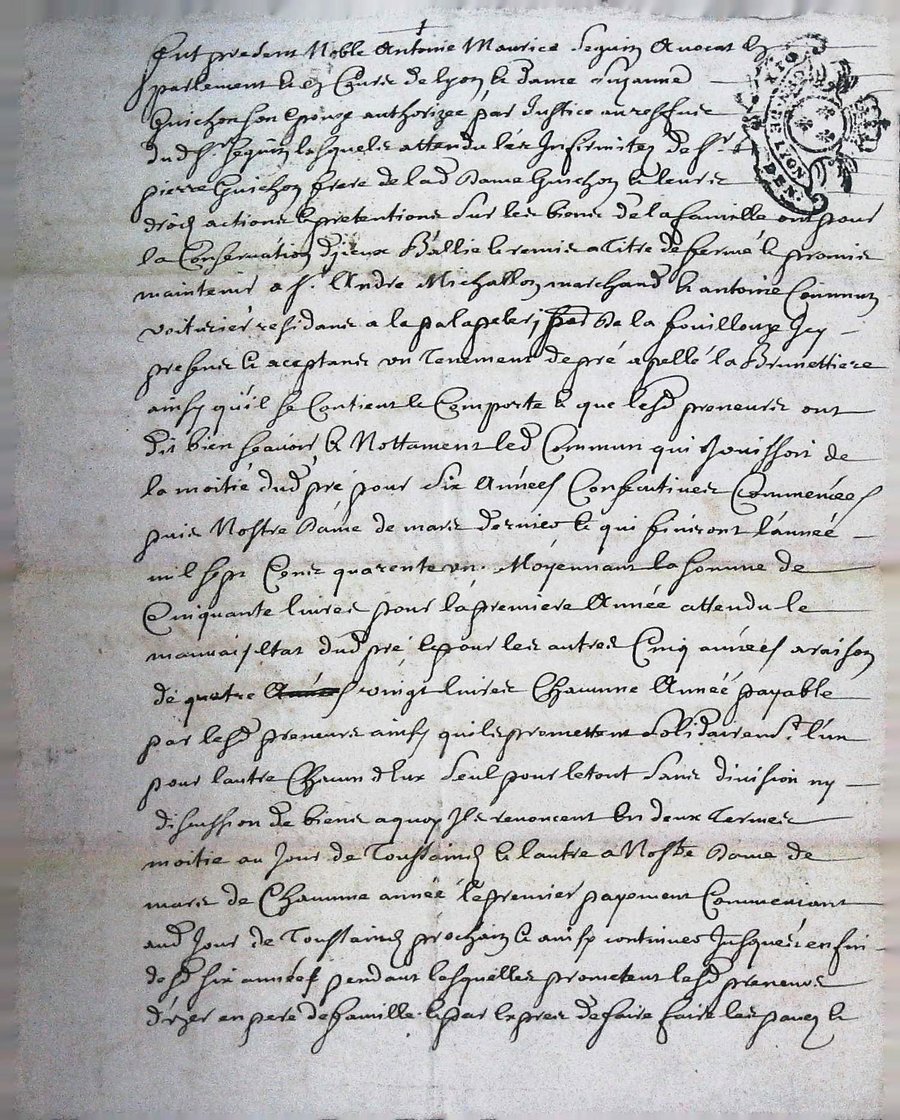 fut present Noble Antoine Maurice Seguin Avocat en
parlement & es Cours de lyon & dame Suzanne
Guichon son epouze authorizee par Justice au reffus
dud Sr. Seguin lesquels attendu les Infirmitez de Sr.
pierre Guichon frere de lad Dame Guichon & leurs
droits actions & pretentions sur les biens de la famille ont pour
la Conservation d'jceux Ballié & remis a titre de ferme & promis
maintenir a Sr. Andre Michallon marchand & antoine Commun
voiturier residans a la palapelerj de la fouillouze Icy
presens & aceptans un Tenement de pré apellé la Brunettiere
ainsy qu'il se Contient & Comporte & que lesd preneurs ont
dit bien sçavoir & Nottament led Commun qui Jouissoit de
la moitié dud pré pour six Années Consecutives Commencées
puis Nostre Dame de mars dernier & qui finiront l'année
mil sept Cens quarente un. Moyennant la somme de
Cinquante livres pour la premiere Année attendu le
mauvais Etat dud pré & pour les autres Cinq années a raison
de quatre vingt livres Chacunne Année payable
par lesd preneurs ainsy qu'ils promettent solidairemt. l'un
pour l'autre Chacun d'Eux seul pour le tout sans division ny
discussion de biens a quoy Ils renoncent En deux Termes
moitié au Jour de Toussaincts & l'autre a Nostre Dame de
mars de Chacunne année le premier payement Commencant
aud Jour de Toussaincts prochain & ainsy continuer Jusques en fin
desd six années pendant lesquelles promettent lesd preneurs
d'Uzer en pere de famille & par Exprez de faire faire les
LYON
DEN.